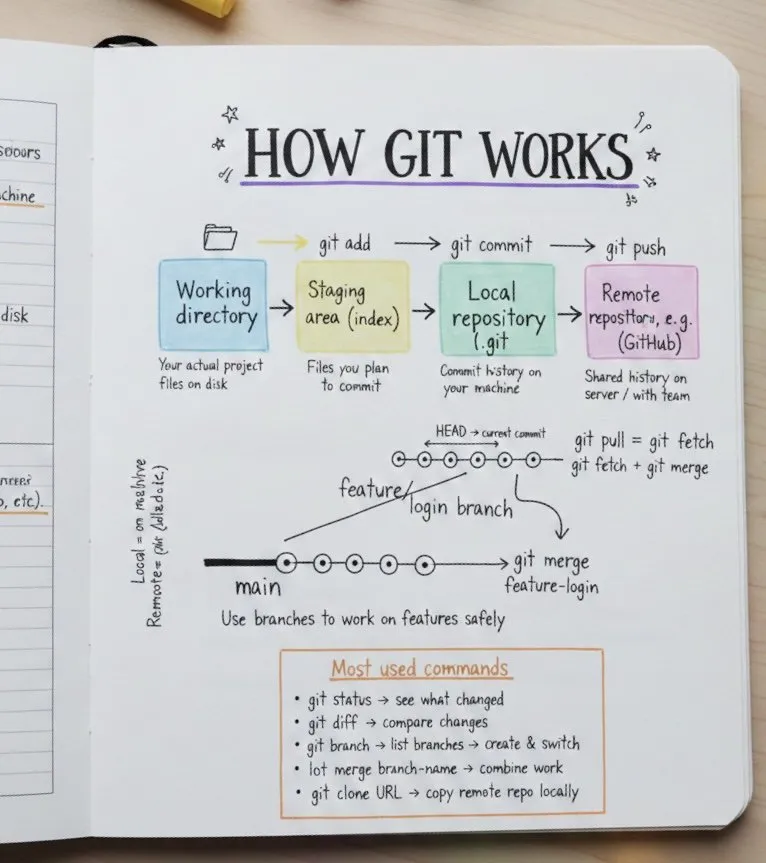 chine
disk
, etc).
HOW GIT WORKS
git add
git commit
git push
Working
directory
Staging
area (index)
Local
repository
(.git
Remote
e.g.
(GitHub)
Your actual project
files on disk
Files you plan
to commit
Commit history on
your machine
Shared history on
server / with team
HEAD → current commit
git pull = git fetch
git fetch + git merge
feature/
login branch
Local = on
main
git merge
feature-login
Use branches to work on features safely
Most used commands
• git status → see what changed
• git diff → compare changes
• git branch → list branches → create & switch
• lot merge branch-name → combine work
• git clone URL → copy remote repo locally